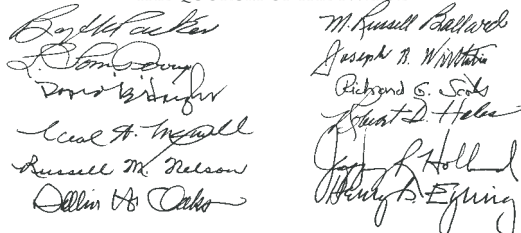 Boyd K. Packer
L. Tom Perry
David B. Haight
Neal A. Maxwell
Russell M. Nelson
Dallin H. Oaks
M. Russell Ballard
Joseph B. Wirthlin
Richard G. Scott
Robert D. Hales
Jeffrey R. Holland
Henry B. Eyring